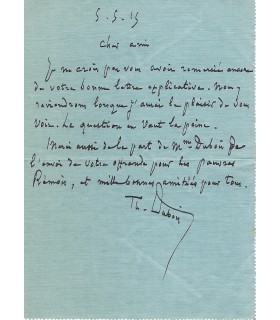 5-5-15
Cher ami
Je ne crois pas vous avoir remercié encore
de votre bonne lettre explicative. Nous y
reviendrons lorsque j'aurai le plaisir de vous
voir. La question en vaut la peine.
Merci aussi de la part de Mme Dubois de
l'envoi de votre offrande pour les pauvres
Rémois, et mille bonnes amitiés pour tous.
Th. Dubois